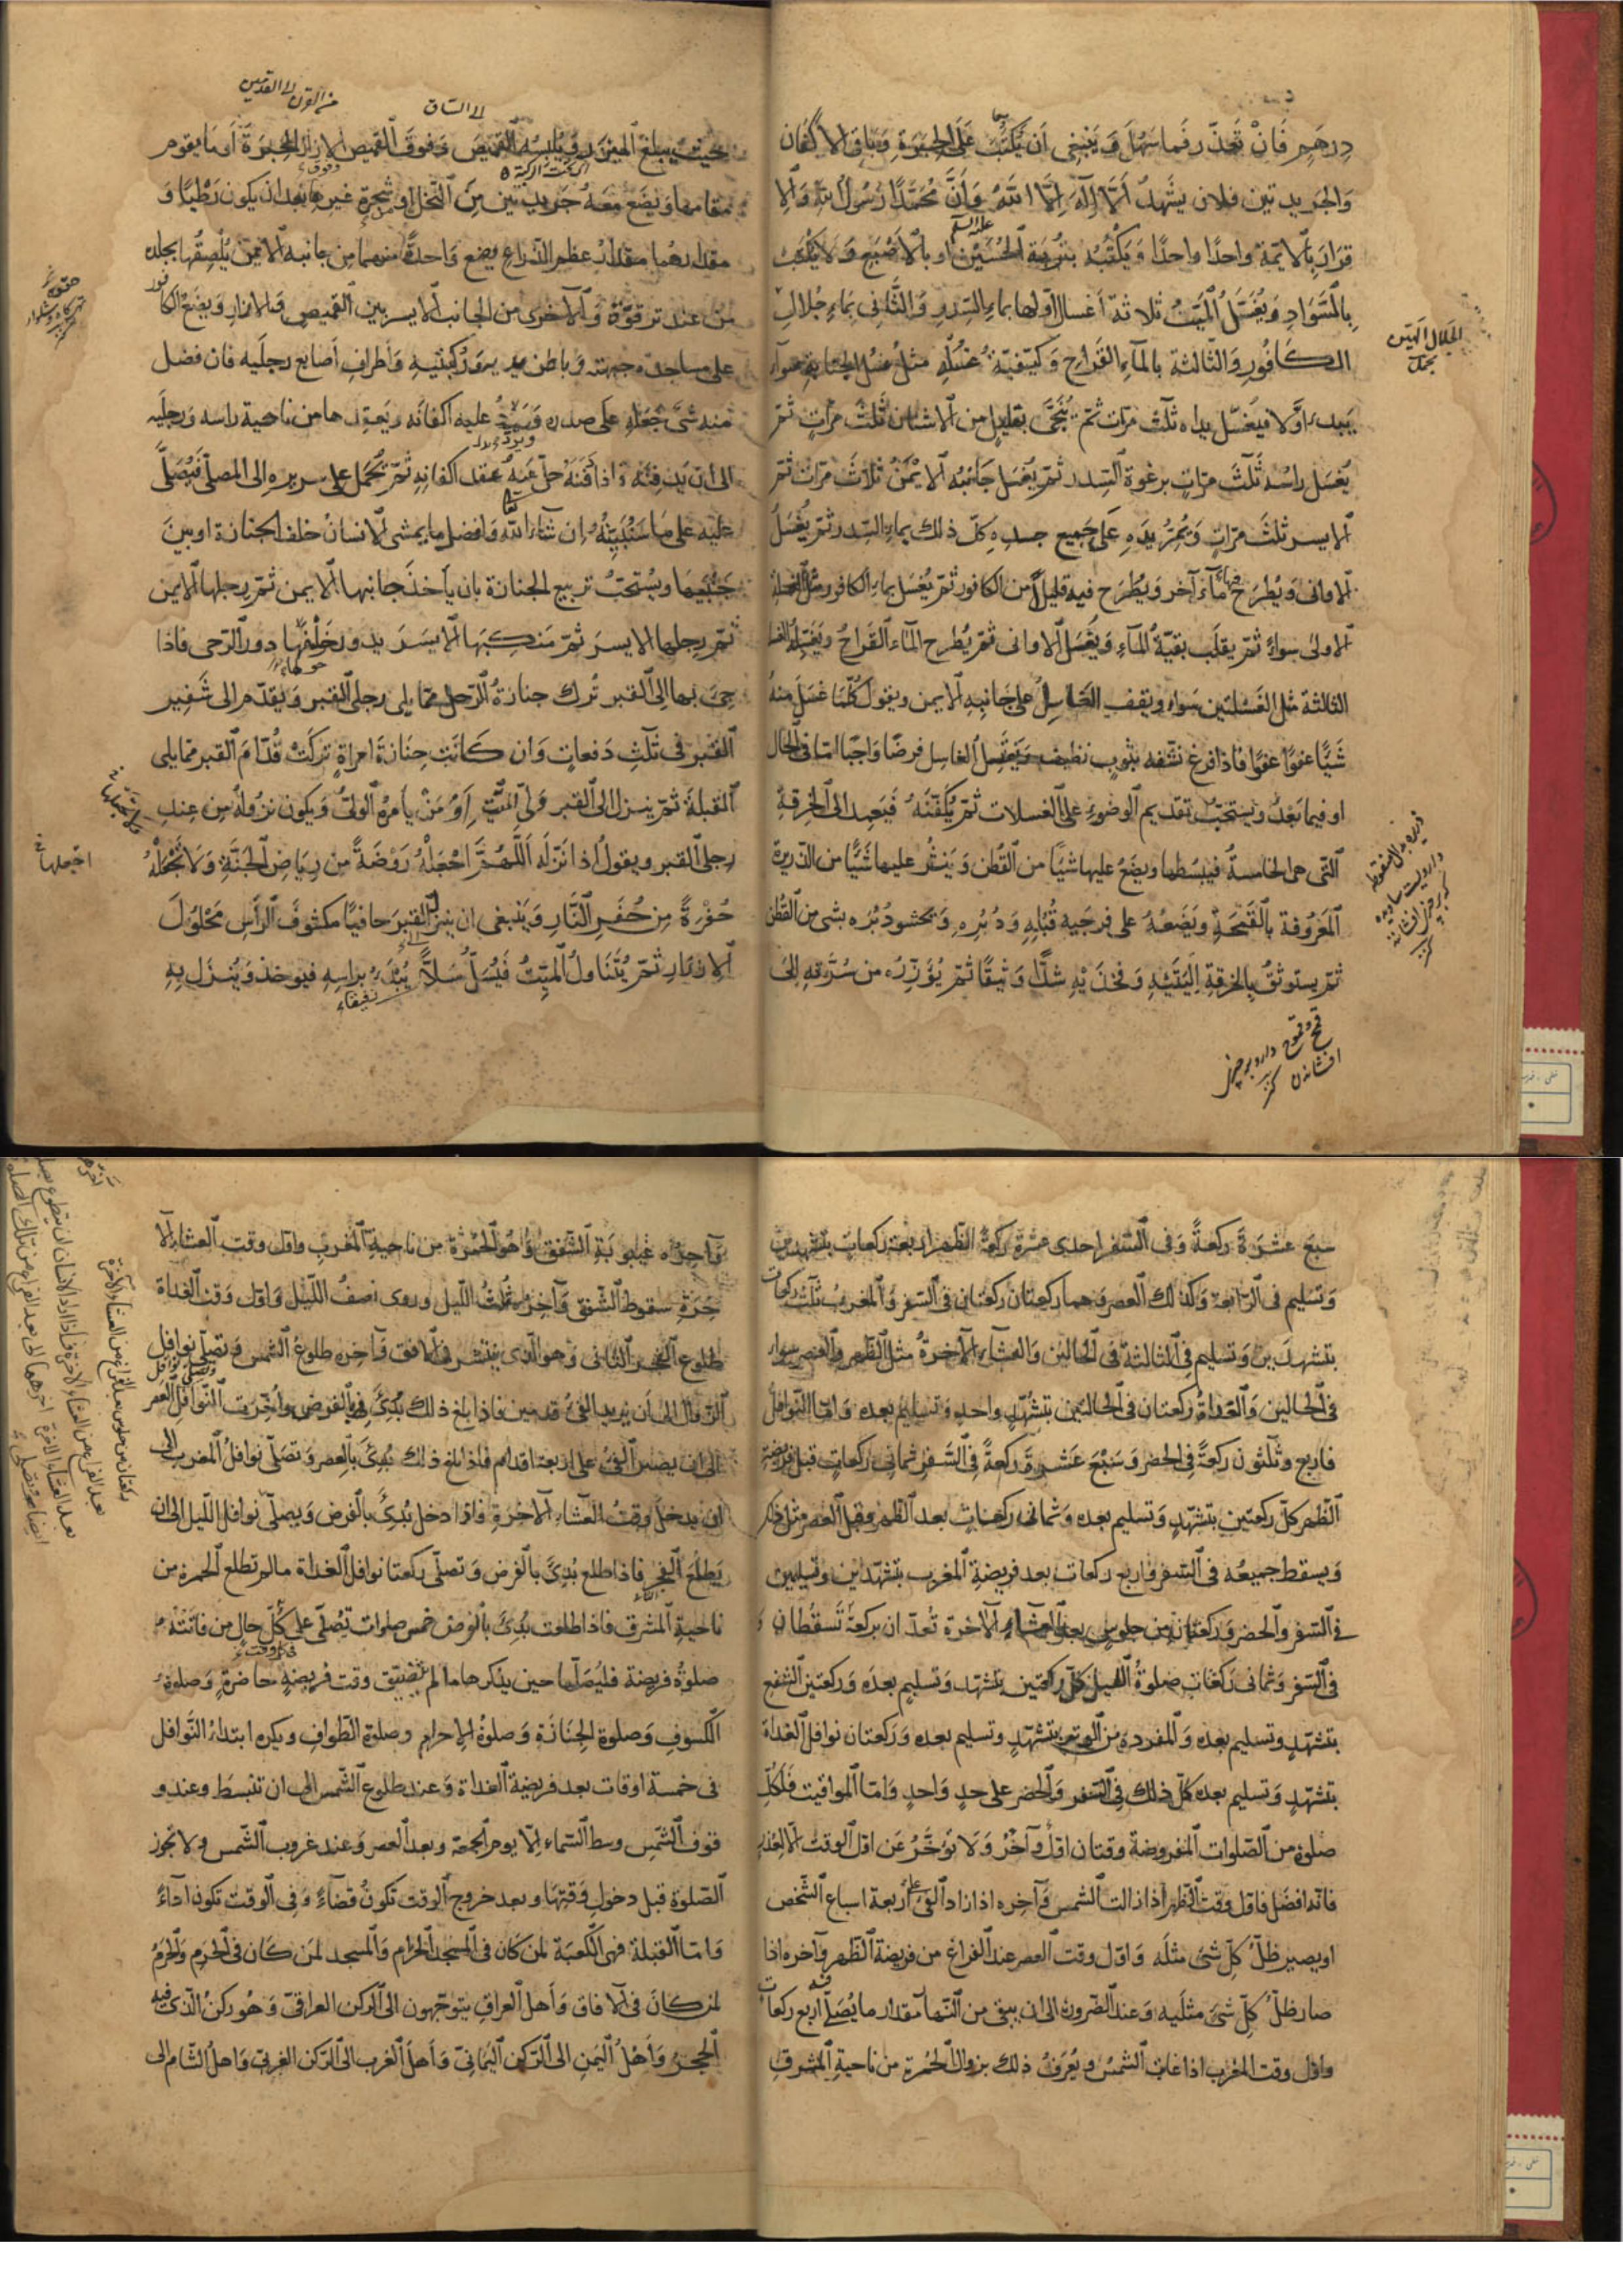 درهم فان تعذّر فما سهل وينبغى ان يكتب على الحبرة وباقى الاكفان
والجريدتين فلان يشهد ان لا اله الا الله وان محمدًا رسول الله والا
قرار بالائمة واحدًا واحدًا ويكتب بتربة الحسين او بالاصبع ولا يكتب
بالسواد ويغسل الميت ثلاثة اغسال اولها بماء السدر والثانى بماء جلال
الكافور والثالثة بالماء القراح وكيفية غسله مثل غسل الجنابة سواء
يبدء اولا فيغسل يداه ثلث مرات ثم ينجى بقليل من الاشنان ثلث مرات ثم
يغسل راسه ثلث مرات برغوة السدر ثم يغسل جانبه الايمن ثلاث مرات ثم
الايسر ثلث مرات ويمر يده على جميع جسده كل ذلك بماء السدر ثم يغسل
الاوانى ويطرح فيها ماء آخر ويطرح فيه قليلا من الكافور ثم يغسل بماء الكافور مثل الغسلة
الاولى سواء ثم يقلب بقية الماء ويغسل الاوانى ثم يطرح الماء القراح ويغسله الغسلة
الثالثة مثل الغسلتين سواء ويقف الغاسل على جانبه الايمن ويقول كلما غسل منه
شيئًا عفوًا عفوًا فاذا فرغ نشفه بثوب نظيف ويغتسل الغاسل فرضًا واجبًا اما فى الحال
او فيما بعد ويستحب تقديم الوضوء على الغسلات ثم يكفنه فيعمد الى الخرقة
التى هى الخامسة فيبسطها ويضع عليها شيئًا من القطن وينثر عليها شيئًا من الذريرة
المعروفة بالقمحة ويضعه على فرجيه قبله ودبره ويحشو دبره بشئ من القطن
ثم يستوثق بالخرقة اليتيه وفخذيه شدًا وثيقًا ثم يؤزره من سرته الى
الجلال الهين
من القرن الى القدمين
الى الساق
حيث يبلغ الميزر ويلبسه القميص وفوق القميص الازار الحبرة او ما يقوم
مقامها ويضع معه جريدتين من النخل او من شجرة غيرها بعد ان يكون رطبًا و
مقدارهما مقدار عظم الذراع ويضع واحدة منهما من جانبه الايمن يلصقها بجلده
من عند ترقوته والاخرى من الجانب الايسر بين القميص والازار ويضع الكافور
على مساجده جبهته وباطن يديه وركبتيه واطراف اصابع رجليه فان فضل
منه شئ جعله على صدره ويرد عليه اكفانه ويعقدها من ناحية راسه ورجليه
الى ان يدفنه فاذا دفنه حل عنه عقد اكفانه ثم تحمل على سريره الى المصلى فيصلى
عليه على ما سنبينه ان شاء الله وافضل ما يمشى الانسان خلف الجنازة او بين
جنبيها ويستحب تربيع الجنازة بان ياخذ جانبها الايمن ثم رجلها الايمن
ثم رجلها الايسر ثم منكبها الايسر يدور خلفها دور الرحى فاذا
جئ بها الى القبر ترك جنازة الرجل مما يلى رجلى القبر ويقدم الى شفير
القبر فى ثلث دفعات وان كانت جنازة امراة تركت قدام القبر مما يلى
القبلة ثم ينزل الى القبر ولى الميت او من يامره الولى ويكون نزوله من عند
رجلى القبر ويقول اذا نزله اللهم اجعله روضة من رياض الجنة ولا تجعله
حفرة من حفر النار وينبغى ان ينزل القبر حافيًا مكشوف الراس محلول
الازرار ثم يتناول الميت فيسل سلًا يبدء براسه فيوخذ وينزل به
اجعلها
سبع عشرة ركعة وفى السفر احدى عشرة ركعة الظهر اربعة ركعات بتشهدين
وتسليم فى الرابعة وكذلك العصر وهما ركعتان ركعتان فى السفر والمغرب ثلث ركعات
بتشهدين وتسليم فى الثالثة فى الحالين والعشاء الآخرة مثل الظهر والعصر سواء
فى الحالين والغداة ركعتان فى الحالتين بتشهد واحد وتسليم بعده واما النوافل
فاربع وثلثون ركعة فى الحضر وسبع عشرة ركعة فى السفر ثمانى ركعات قبل فريضة
الظهر كل ركعتين بتشهد وتسليم بعده وثمانى ركعات بعد الظهر وقبل العصر مثل ذلك
ويسقط جميعه فى السفر واربع ركعات بعد فريضة المغرب بتشهدين وتسليمين
فى السفر والحضر وركعتان من جلوس بعد العشاء الآخرة تعدان بركعة تسقطان
فى السفر وثمانى ركعات صلوة الليل كل ركعتين بتشهد وتسليم بعده وركعتين الشفع
بتشهد وتسليم بعده والمفردة من الوتر بتشهد وتسليم بعده وركعتان نوافل الغداة
بتشهد وتسليم بعده كل ذلك فى السفر والحضر على حد واحد واما المواقيت فلكل
صلوة من الصلوات المفروضة وقتان اول وآخر ولا تؤخر عن اول الوقت الا لعذر
فانه افضل فاول وقت الظهر اذا زالت الشمس وآخره اذا زاد الفئ اربعة اسباع الشخص
او يصير ظل كل شئ مثله واول وقت العصر عند الفراغ من فريضة الظهر وآخره اذا
صار ظل كل شئ مثليه وعند الضرورة الى ان يبقى من النهار مقدار ما يصلى فيه اربع ركعات
واول وقت المغرب اذا غابت الشمس ويعرف ذلك بزوال الحمرة من ناحية المشرق
وآخره غيبوبة الشفق وهو الحمرة من ناحية المغرب واول وقت العشاء الآ
خرة سقوط الشفق وآخره ثلث الليل وروى نصف الليل واول وقت الغداة
طلوع الفجر الثانى وهو الذى ينتشر فى الافق وآخره طلوع الشمس وتصلى نوافل
الزوال الى ان يزيد الفئ قدمين فاذا بلغ ذلك بدئ بالفرض واخرت النوافل وتصلى نوافل العصر
الى ان يصير الفئ على اربعة اقدام فاذا بلغ ذلك بدئ بالعصر وتصلى نوافل المغرب الى
ان يدخل وقت العشاء الآخرة فاذا دخل بدئ بالفرض ويصلى نوافل الليل الى ان
يطلع الفجر فاذا طلع بدئ بالفرض وتصلى ركعتا نوافل الغداة ما لم تطلع الحمرة من
ناحية المشرق فاذا طلعت بدئ بالفرض خمس صلوات تصلى على كل حال من فاتته
صلوة فريضة فليصلها حين يذكرها ما لم تضيق وقت فريضة حاضرة وصلوة
الكسوف وصلوة الجنازة وصلوة الاحرام وصلوة الطواف ويكره ابتداء النوافل
فى خمسة اوقات بعد فريضة الغداة وعند طلوع الشمس الى ان تنبسط وعند و
قوف الشمس وسط السماء الا يوم الجمعة وبعد العصر وعند غروب الشمس ولا تجوز
الصلوة قبل دخول وقتها وبعد خروج الوقت تكون قضاءً وفى الوقت تكون اداءً
واما القبلة فهى الكعبة لمن كان فى المسجد الحرام والمسجد لمن كان فى الحرم والحرم
لمن كان فى الآفاق واهل العراق يتوجهون الى الركن العراقى وهو ركن الذى فيه
الحجر واهل اليمن الى الركن اليمانى واهل الغرب الى الركن الغربى واهل الشام الى